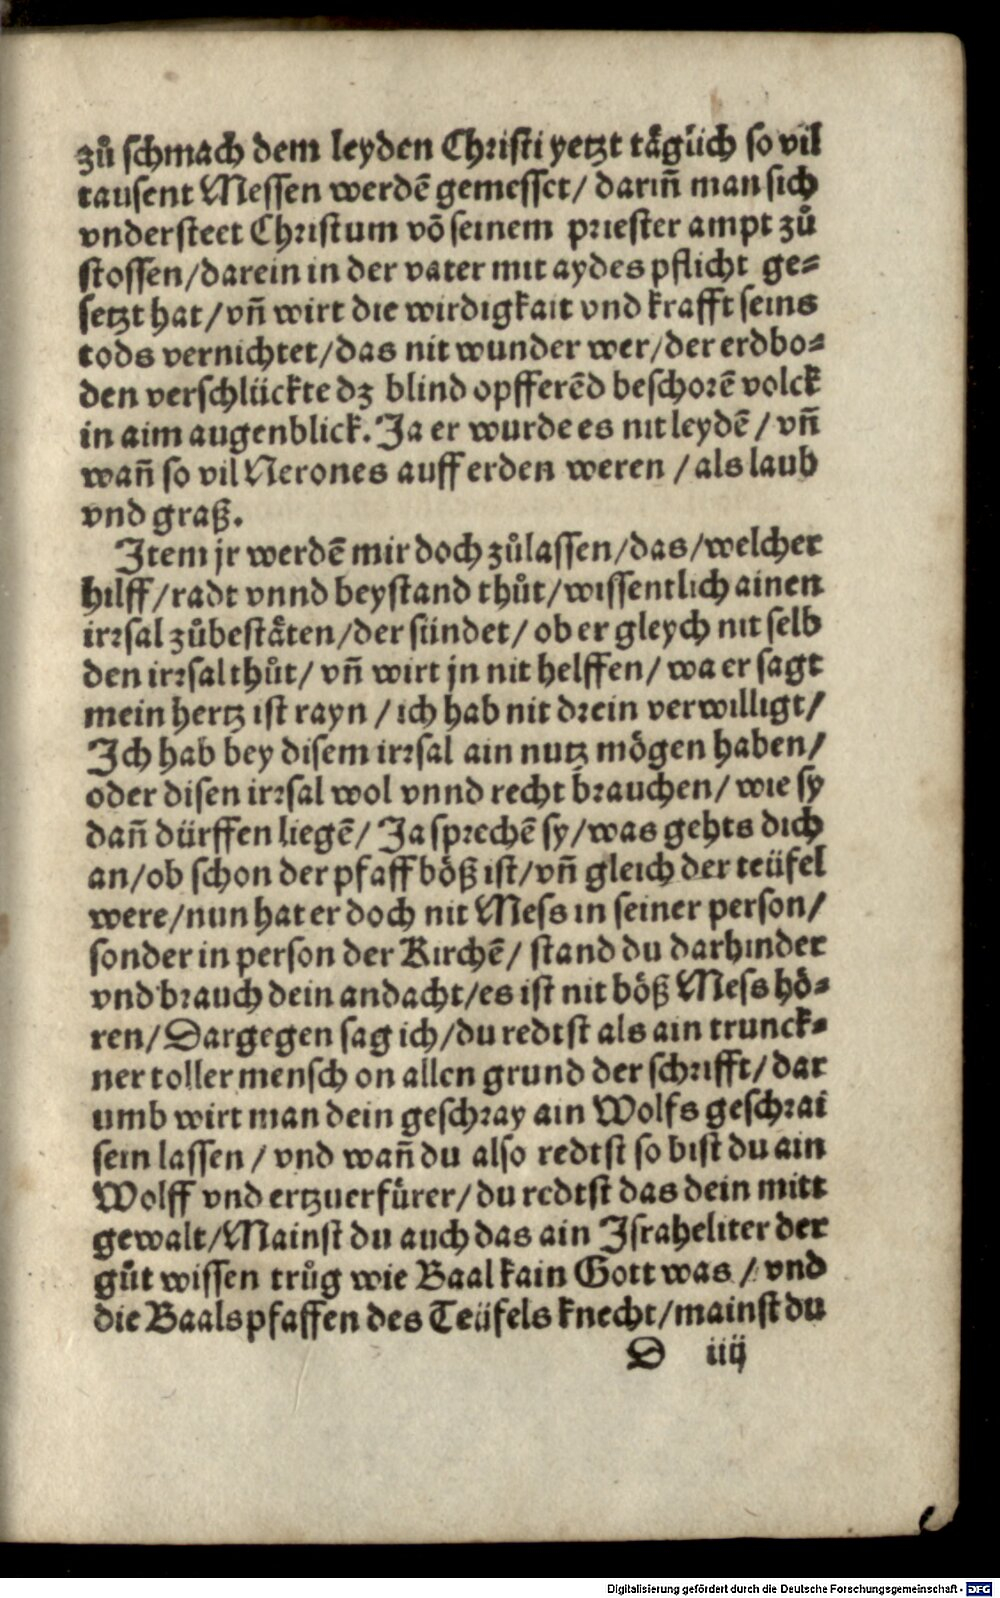 zů schmach dem leyden Christi yetzt täglich so vil
tausent Messen werdē gemesset/ dariñ man sich
vndersteet Christum vō seinem priester ampt zů
stossen/darein in der vater mit aydes pflicht ge-
setzt hat/vñ wirt die wirdigkait vnd krafft seins
tods vernichtet/das nit wunder wer/der erdbo-
den verschlückte dz blind opfferēd beschorē volck
in aim augenblick. Ja er wurde es nit leydē/ vñ
wañ so vil Nerones auff erden weren /als laub
vnd graß.
Item jr werdē mir doch zůlassen/das/welcher
hilff/radt vnnd beystand thůt/wissentlich ainen
irrsal zůbestäten/der sündet/ ob er gleych nit selb
den irrsal thůt/ vñ wirt jn nit helffen/ wa er sagt
mein hertz ist rayn /ich hab nit drein verwilligt/
Ich hab bey disem irrsal ain nutz mögen haben/
oder disen irrsal wol vnnd recht brauchen/ wie sy
dañ dürffen liegē/ Ja sprechē sy/was gehts dich
an/ob schon der pfaff böß ist/vñ gleich der teüfel
were/nun hat er doch nit Mess in seiner person/
sonder in person der Kirchē/ stand du darhinder
vnd brauch dein andacht/es ist nit böß Mess hö-
ren/Dargegen sag ich/du redtst als ain trunck-
ner toller mensch on allen grund der schrifft/ dar
umb wirt man dein geschray ain Wolfs geschrai
sein lassen / vnd wañ du also redtst so bist du ain
Wolff vnd ertzuerfürer/du redtst das dein mitt
gewalt/Mainst du auch das ain Israheliter der
gůt wissen trůg wie Baal kain Gott was / vnd
die Baals pfaffen des Teüfels knecht/mainst du
D iiij
Digitalisierung gefördert durch die Deutsche Forschungsgemeinschaft - DFG